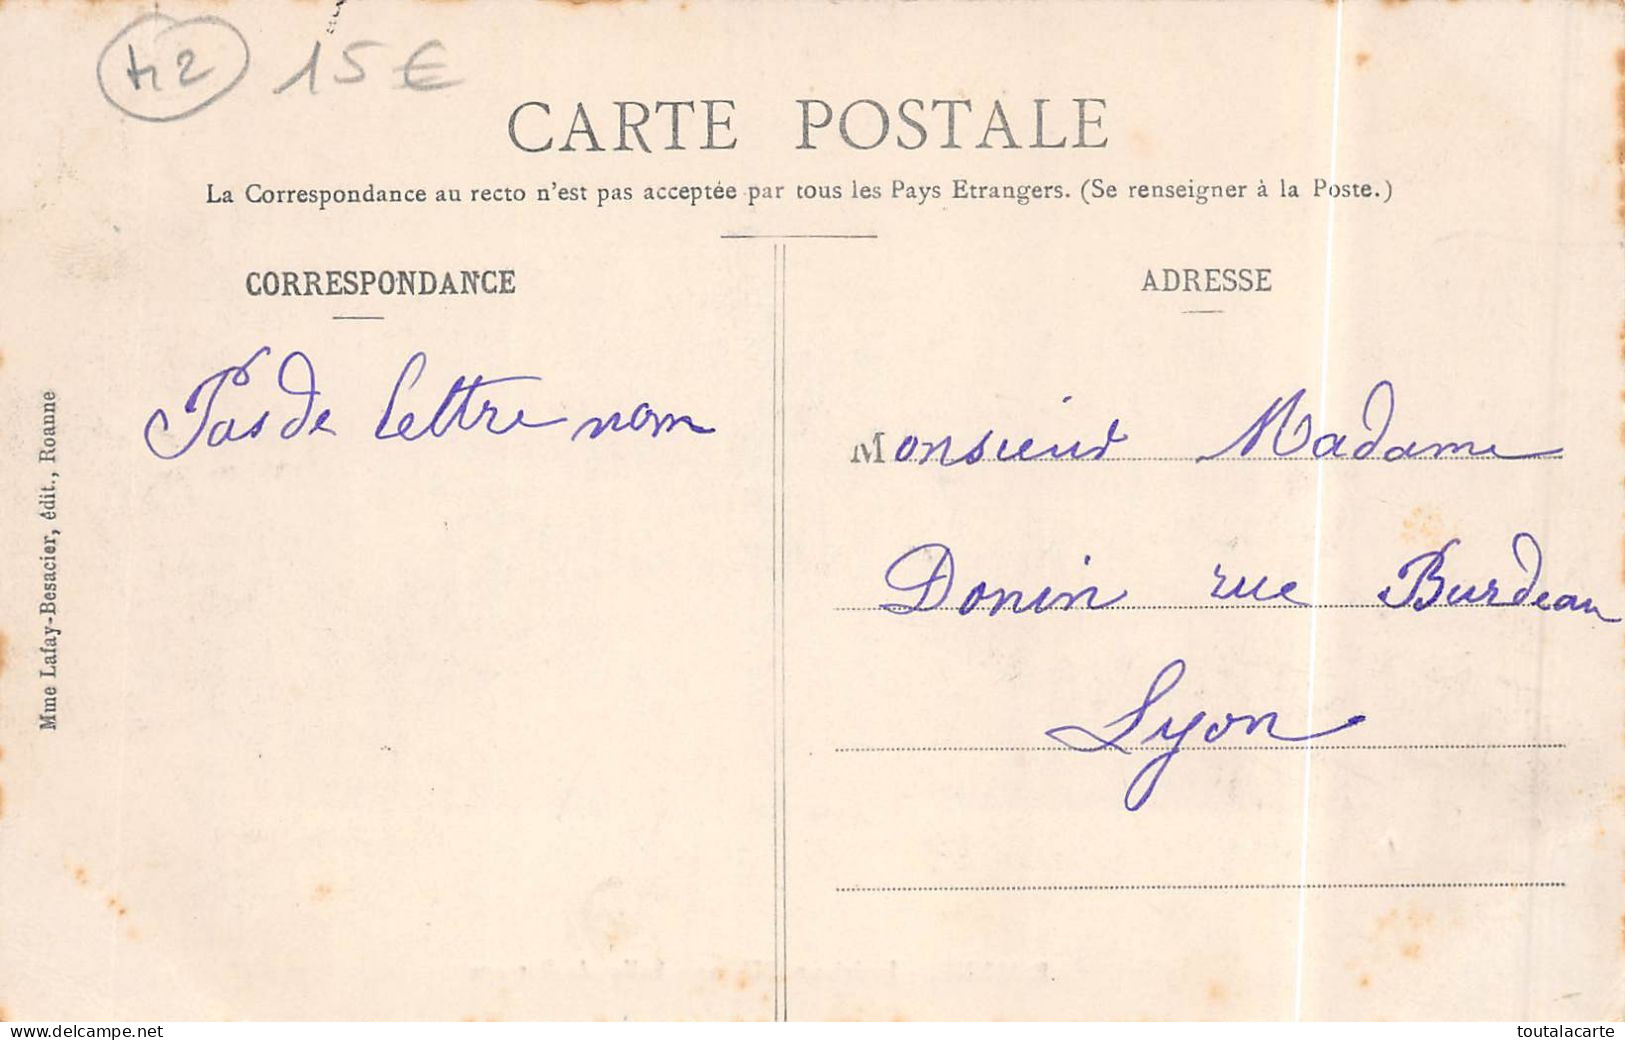 42 15 €
CARTE POSTALE
La Correspondance au recto n'est pas acceptée par tous les Pays Etrangers. (Se renseigner à la Poste.)
CORRESPONDANCE
Pas de lettre nom
Mme Lafay-Besacier, édit., Roanne
ADRESSE
Monsieur Madame
Donin rue Burdeau
Lyon
www.delcampe.net
toutalacarte